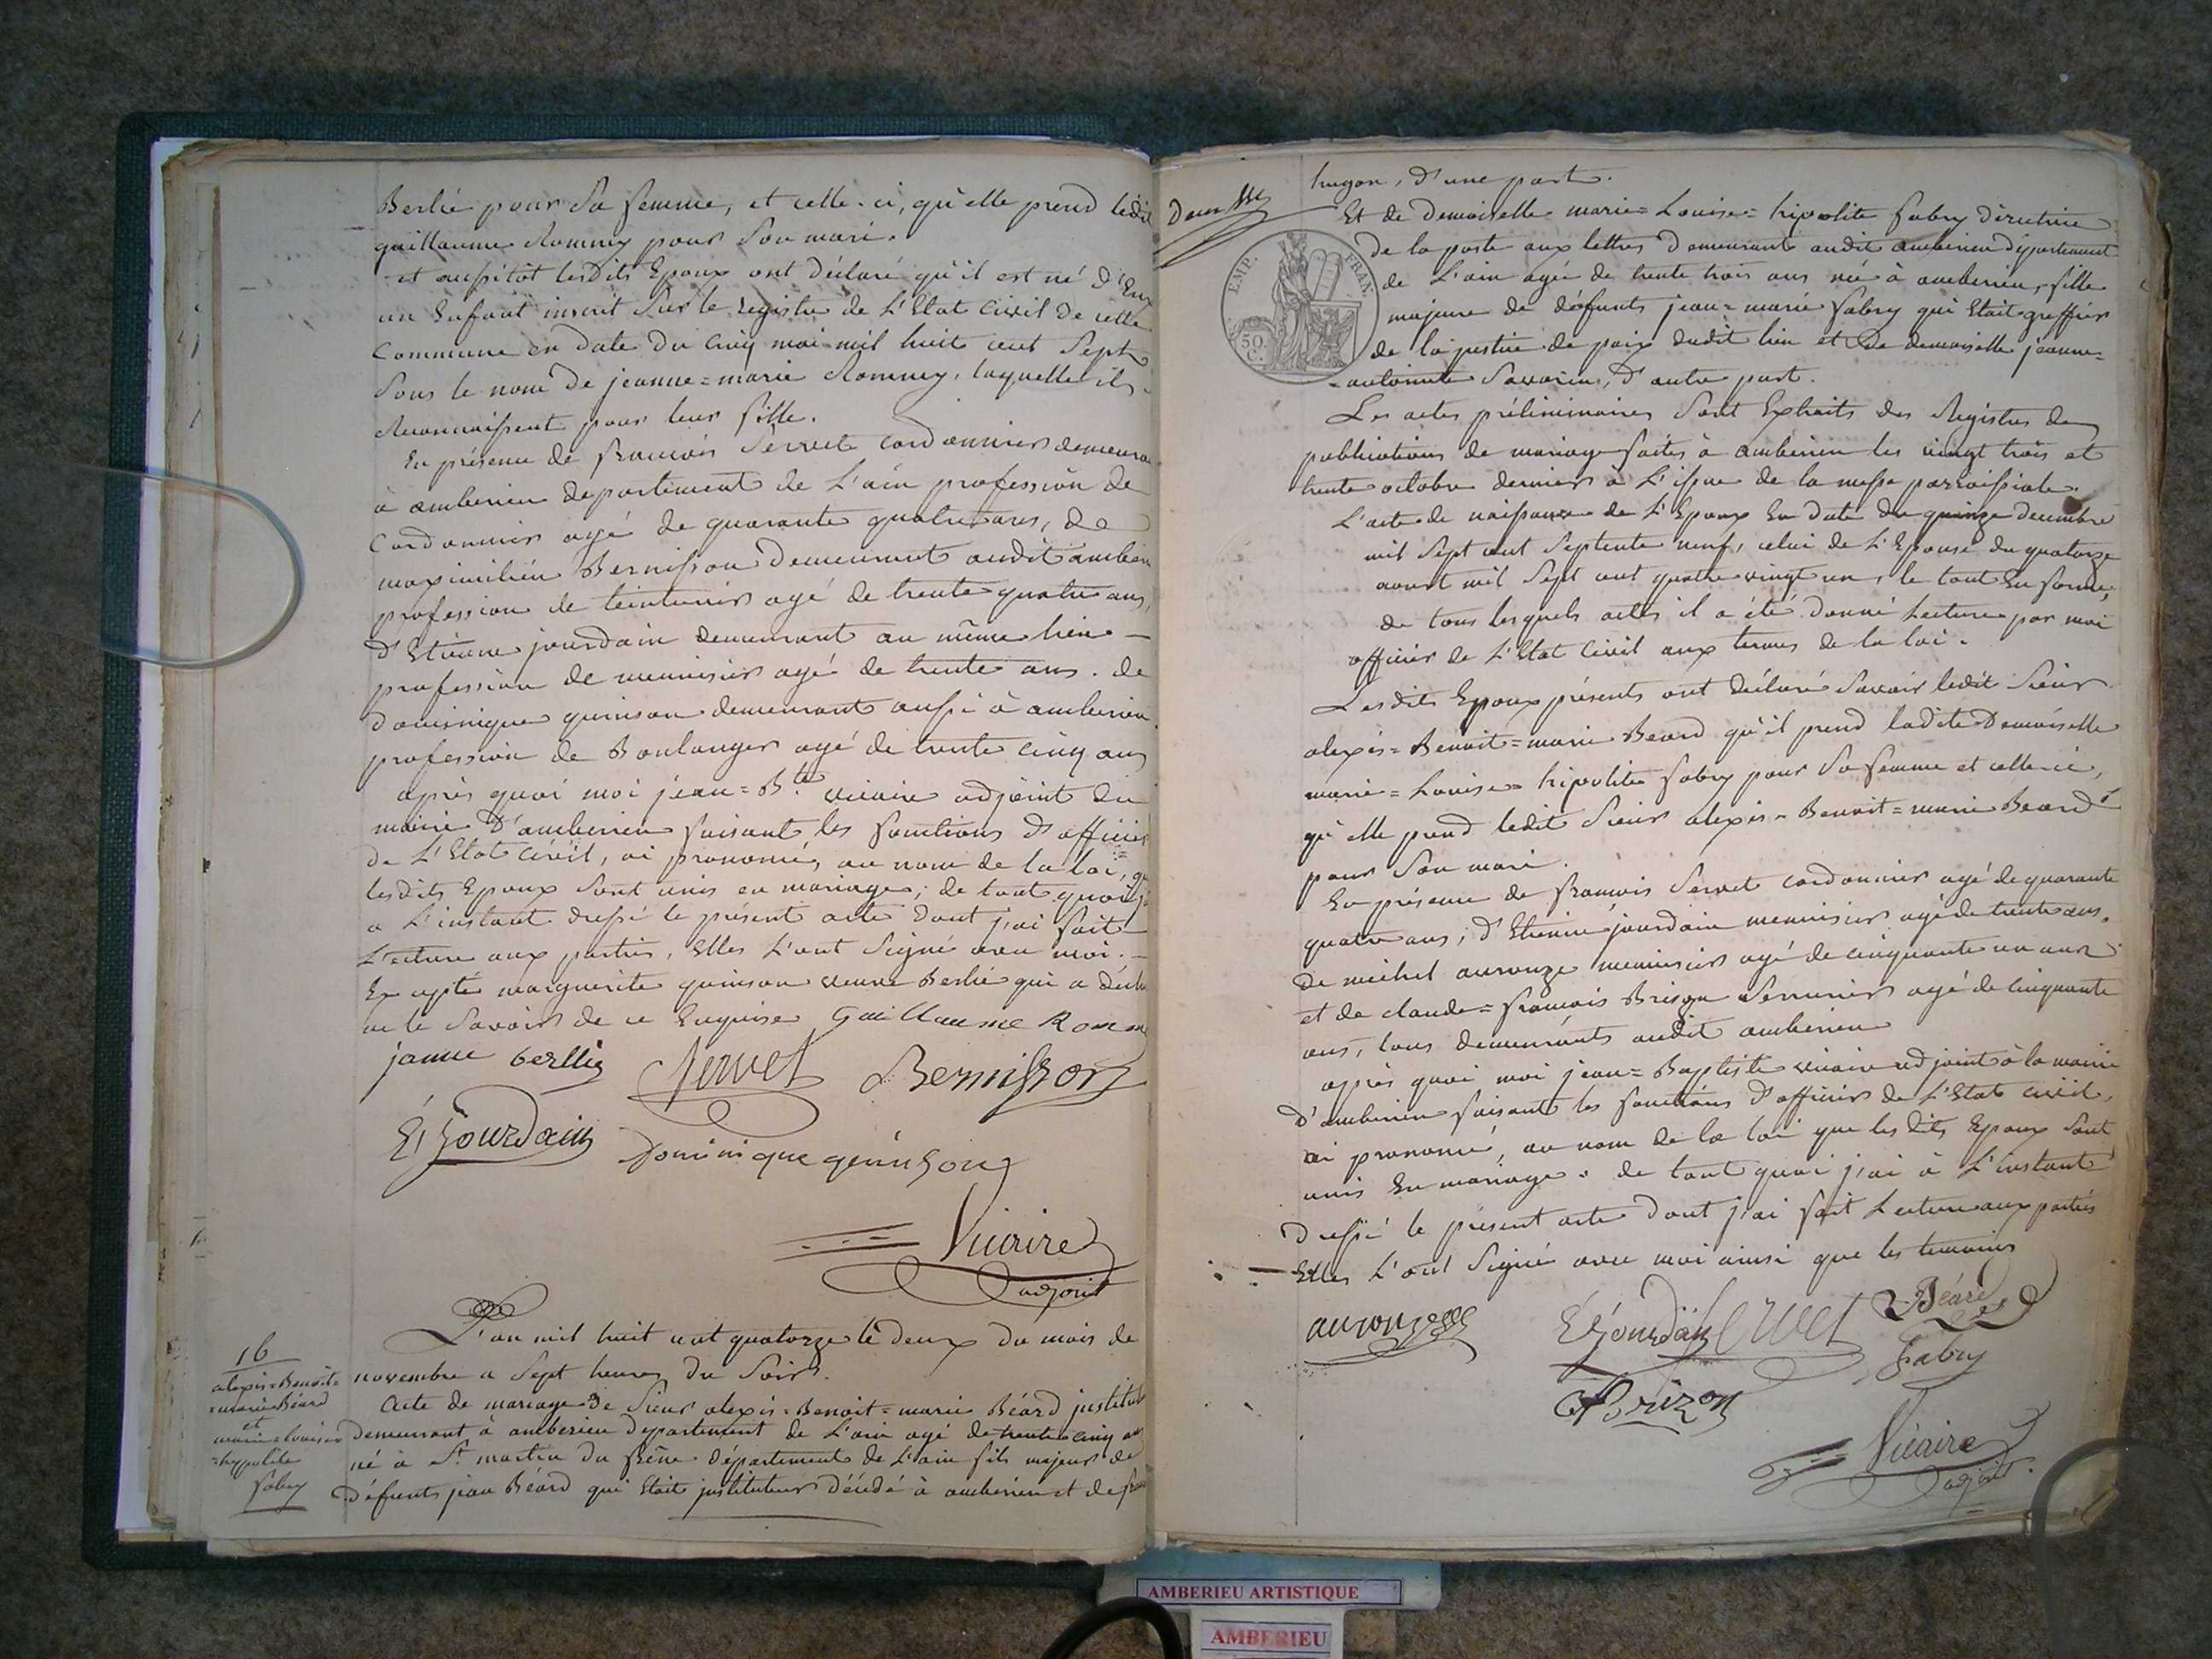 Berlié pour Sa femme, et celle-ci, qu'elle prend ledit
guillaume Rommey pour Son mari.
et aussitôt lesdits Epoux ont déclaré qu'il est né d'Eux
un Enfant inscrit Sur le registre de L'Etat Civil de cette
Commune en Date du Cinq mai mil huit cent Sept
Sous le nom de jeanne=marie Rommey, laquelle ils
Reconnaissent pour leur fille.
En présence de francois Servet cordonnier demeura
à amberieu departement de L'ain profession de
Cordonnier agé de quarante quatre ans, de
maximilien Bernisson Demeurant audit amberieu
profession de teinturier agé de trente quatre ans,
d'Etienne jourdain demeurant au même lieu
profession de menuisier agé de trente ans. de
Dominique guinson demeurant aussi à amberieu
profession de Boulanger agé de trente cinq ans
après quoi moi jean=Bte vicaire adjoint du
maire d'amberieu faisant les fonctions d'officier
de L'Etat Civil, ai prononcé, au nom de la loi, qu
lesdits Epoux Sont unis en mariage; de tout quoi j'
a L'instant dressé le présent acte dont j'ai fait
Lecture aux parties, Elles L'ont Signé avec moi.
Excepté marguerite guinson veuve Berlié qui a décla
ne le Savoir de ce Enquise Guillaume Romme
janne berllié Servet Bernisson
Et Jourdain Dominique guinson
Vicaire
adjoint
L'an mil huit cent quatorze le deux du mois de
novembre a Sept heures du Soir.
16
alexis=Benoit=
=marie Béard
et
marie=louise=
=hypolite
fabry
Acte de mariage de Sieur alexis=Benoit=marie Béard jnstitut
Demeurant à amberieu Departement de L'ain agé de trente cinq ans
né à St martin du frêne Département de L'ain fils majeur de
Défunts jean Béard qui Etait jnstituteur décédé à amberieu et de fran
hugon, d'une part.
Et de Demoiselle marie=Louise=hipolite fabry directrice
de la poste aux lettres Demeurante audit amberieu département
de L'ain agée de trente trois ans née à amberieu, fille
majeure de défunts jean=marie fabry qui Etait greffier
de la justice de paix dudit lieu et de demoiselle jeanne=
=antoinette Savarin, d'autre part.
EMP. FRAN.
50 C.
Les actes préliminaires Sont Extraits des Registres de
publications de mariage faites à amberieu les vingt trois et
trente octobre dernier à L'issue de la messe parroissiale.
L'acte de naissance de L'Epoux En date du quinze decembre
mil Sept cent Septente neuf, celui de L'Epouse du quatorze
aoust mil Sept cent quatre vingt un, le tout En forme,
de tous lesquels actes il a été donné Lecture par moi
officier de L'Etat Civil aux termes de la loi.
Lesdits Epoux présents ont déclaré Savoir ledit Sieur
alexis=Benoit=marie Beard qu'il prend ladite Demoiselle
marie=Louise=hipolite fabry pour Sa femme et celle-ci,
qu'elle prend ledit Sieur alexis=Benoit=marie Beard
pour Son mari.
En présence de francois Servet cordonnier agé de quarante
quatre ans, d'Etienne jourdain menuisier agé de trente ans,
de michel auronze menuisier agé de cinquante un ans
et de claude=francois Brison Serrurier agé de cinquante
ans, tous demeurants audit amberieu
après quoi moi jean=Baptiste vicaire adjoint à la mairie
d'amberieu faisant les fonctions d'officier de L'Etat civil,
ai prononcé, au nom de la loi que les dits Epoux Sont
unis En mariage. de tout quoi j'ai à L'instant
Dressé le présent acte dont j'ai fait Lecture aux parties
Elles L'ont Signé avec moi ainsi que les temoins
auronze Et Jourdain Servet Béard
fabry
Brizon
Vicaire
adjoint
AMBERIEU ARTISTIQUE
AMBERIEU